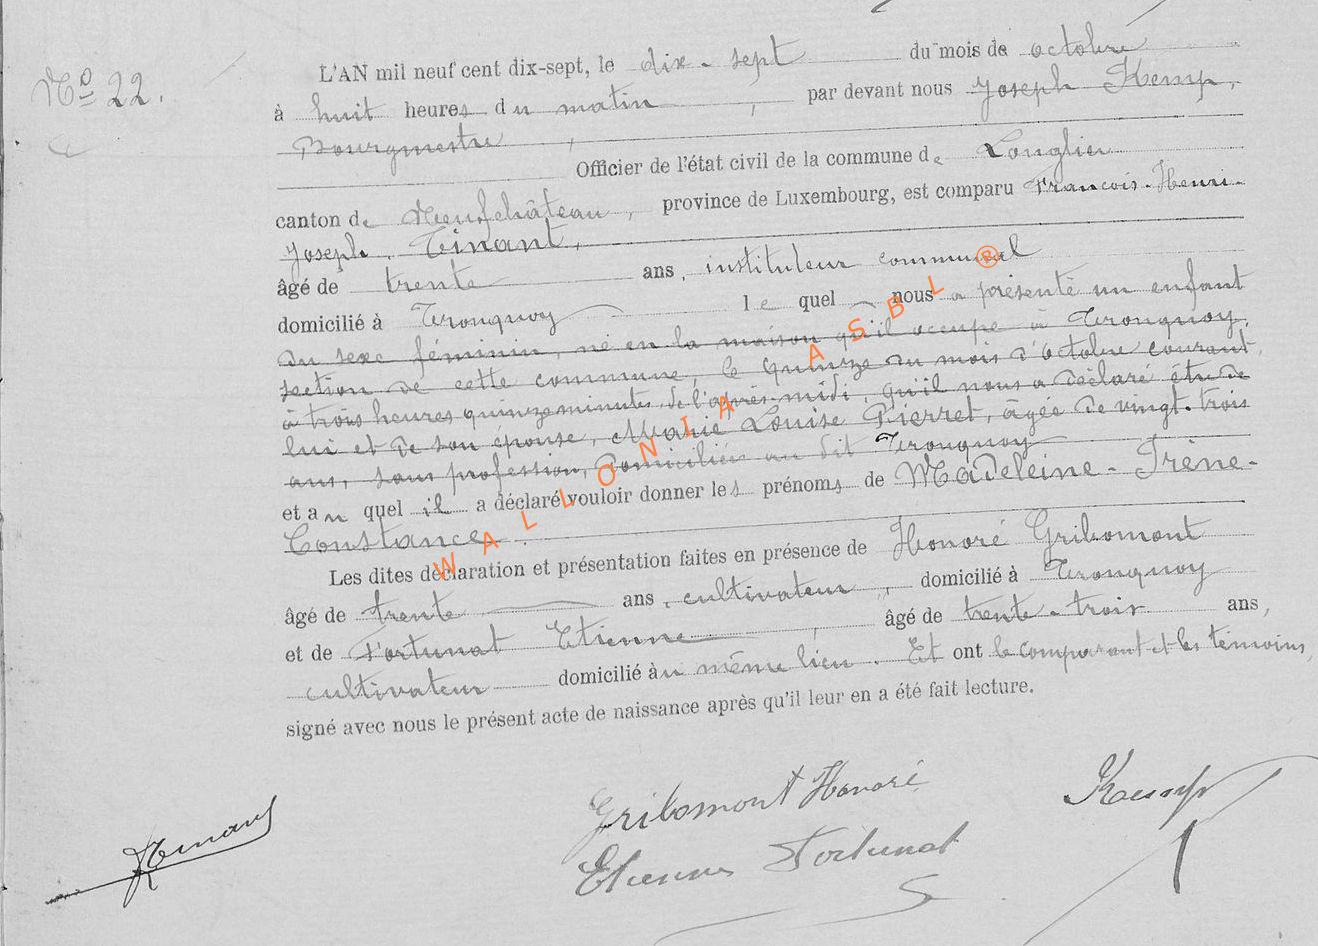 N° 22.
L'AN mil neuf cent dix-sept, le dix-sept du mois de octobre
à huit heures du matin, par devant nous Joseph Kemp,
Bourgmestre,
Officier de l'état civil de la commune de Longlier
canton de Neufchâteau, province de Luxembourg, est comparu François-Henri-
Joseph Tinant,
âgé de trente ans, instituteur communal
domicilié à Tronquoy lequel nous a présenté un enfant
du sexe féminin, né en la maison qu'il occupe à Tronquoy,
section de cette commune, le quinze du mois d'octobre courant
à trois heures quinze minutes de l'après-midi, qu'il nous a déclaré être de
lui et de son épouse, Marie Louise Pierret, âgée de vingt-trois
ans, sans profession, domiciliée au dit Tronquoy
et auquel il a déclaré vouloir donner les prénoms de Madeleine-Irène-
Constance.
Les dites déclaration et présentation faites en présence de Honoré Gribomont
âgé de trente ans, cultivateur, domicilié à Tronquoy
et de Fortunat Etienne, âgé de trente-trois ans,
cultivateur domicilié au même lieu. Et ont le comparant et les témoins,
signé avec nous le présent acte de naissance après qu'il leur en a été fait lecture.
Gribomont Honoré
Kemp
Etienne Fortunat
WALLONIA ASBL ®